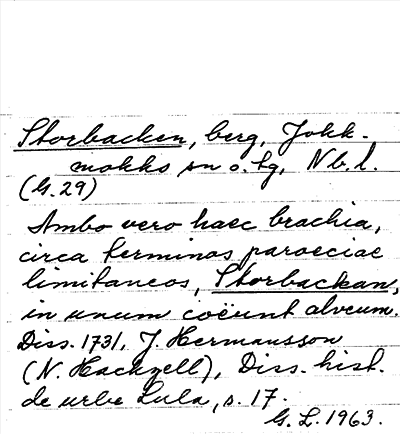 Storbacken, berg, Jokk-
mokks sn o. tg, Nb. l.
(G. 29)
Ambo vero haec brachia,
circa terminos paroeciae
limitaneos, Storbackan,
in unum coëunt alveum.
Diss. 1731. J. Hermansson
(N. Hackzell), Diss. hist.
de urbe Lula, s. 17.
G. L. 1963.